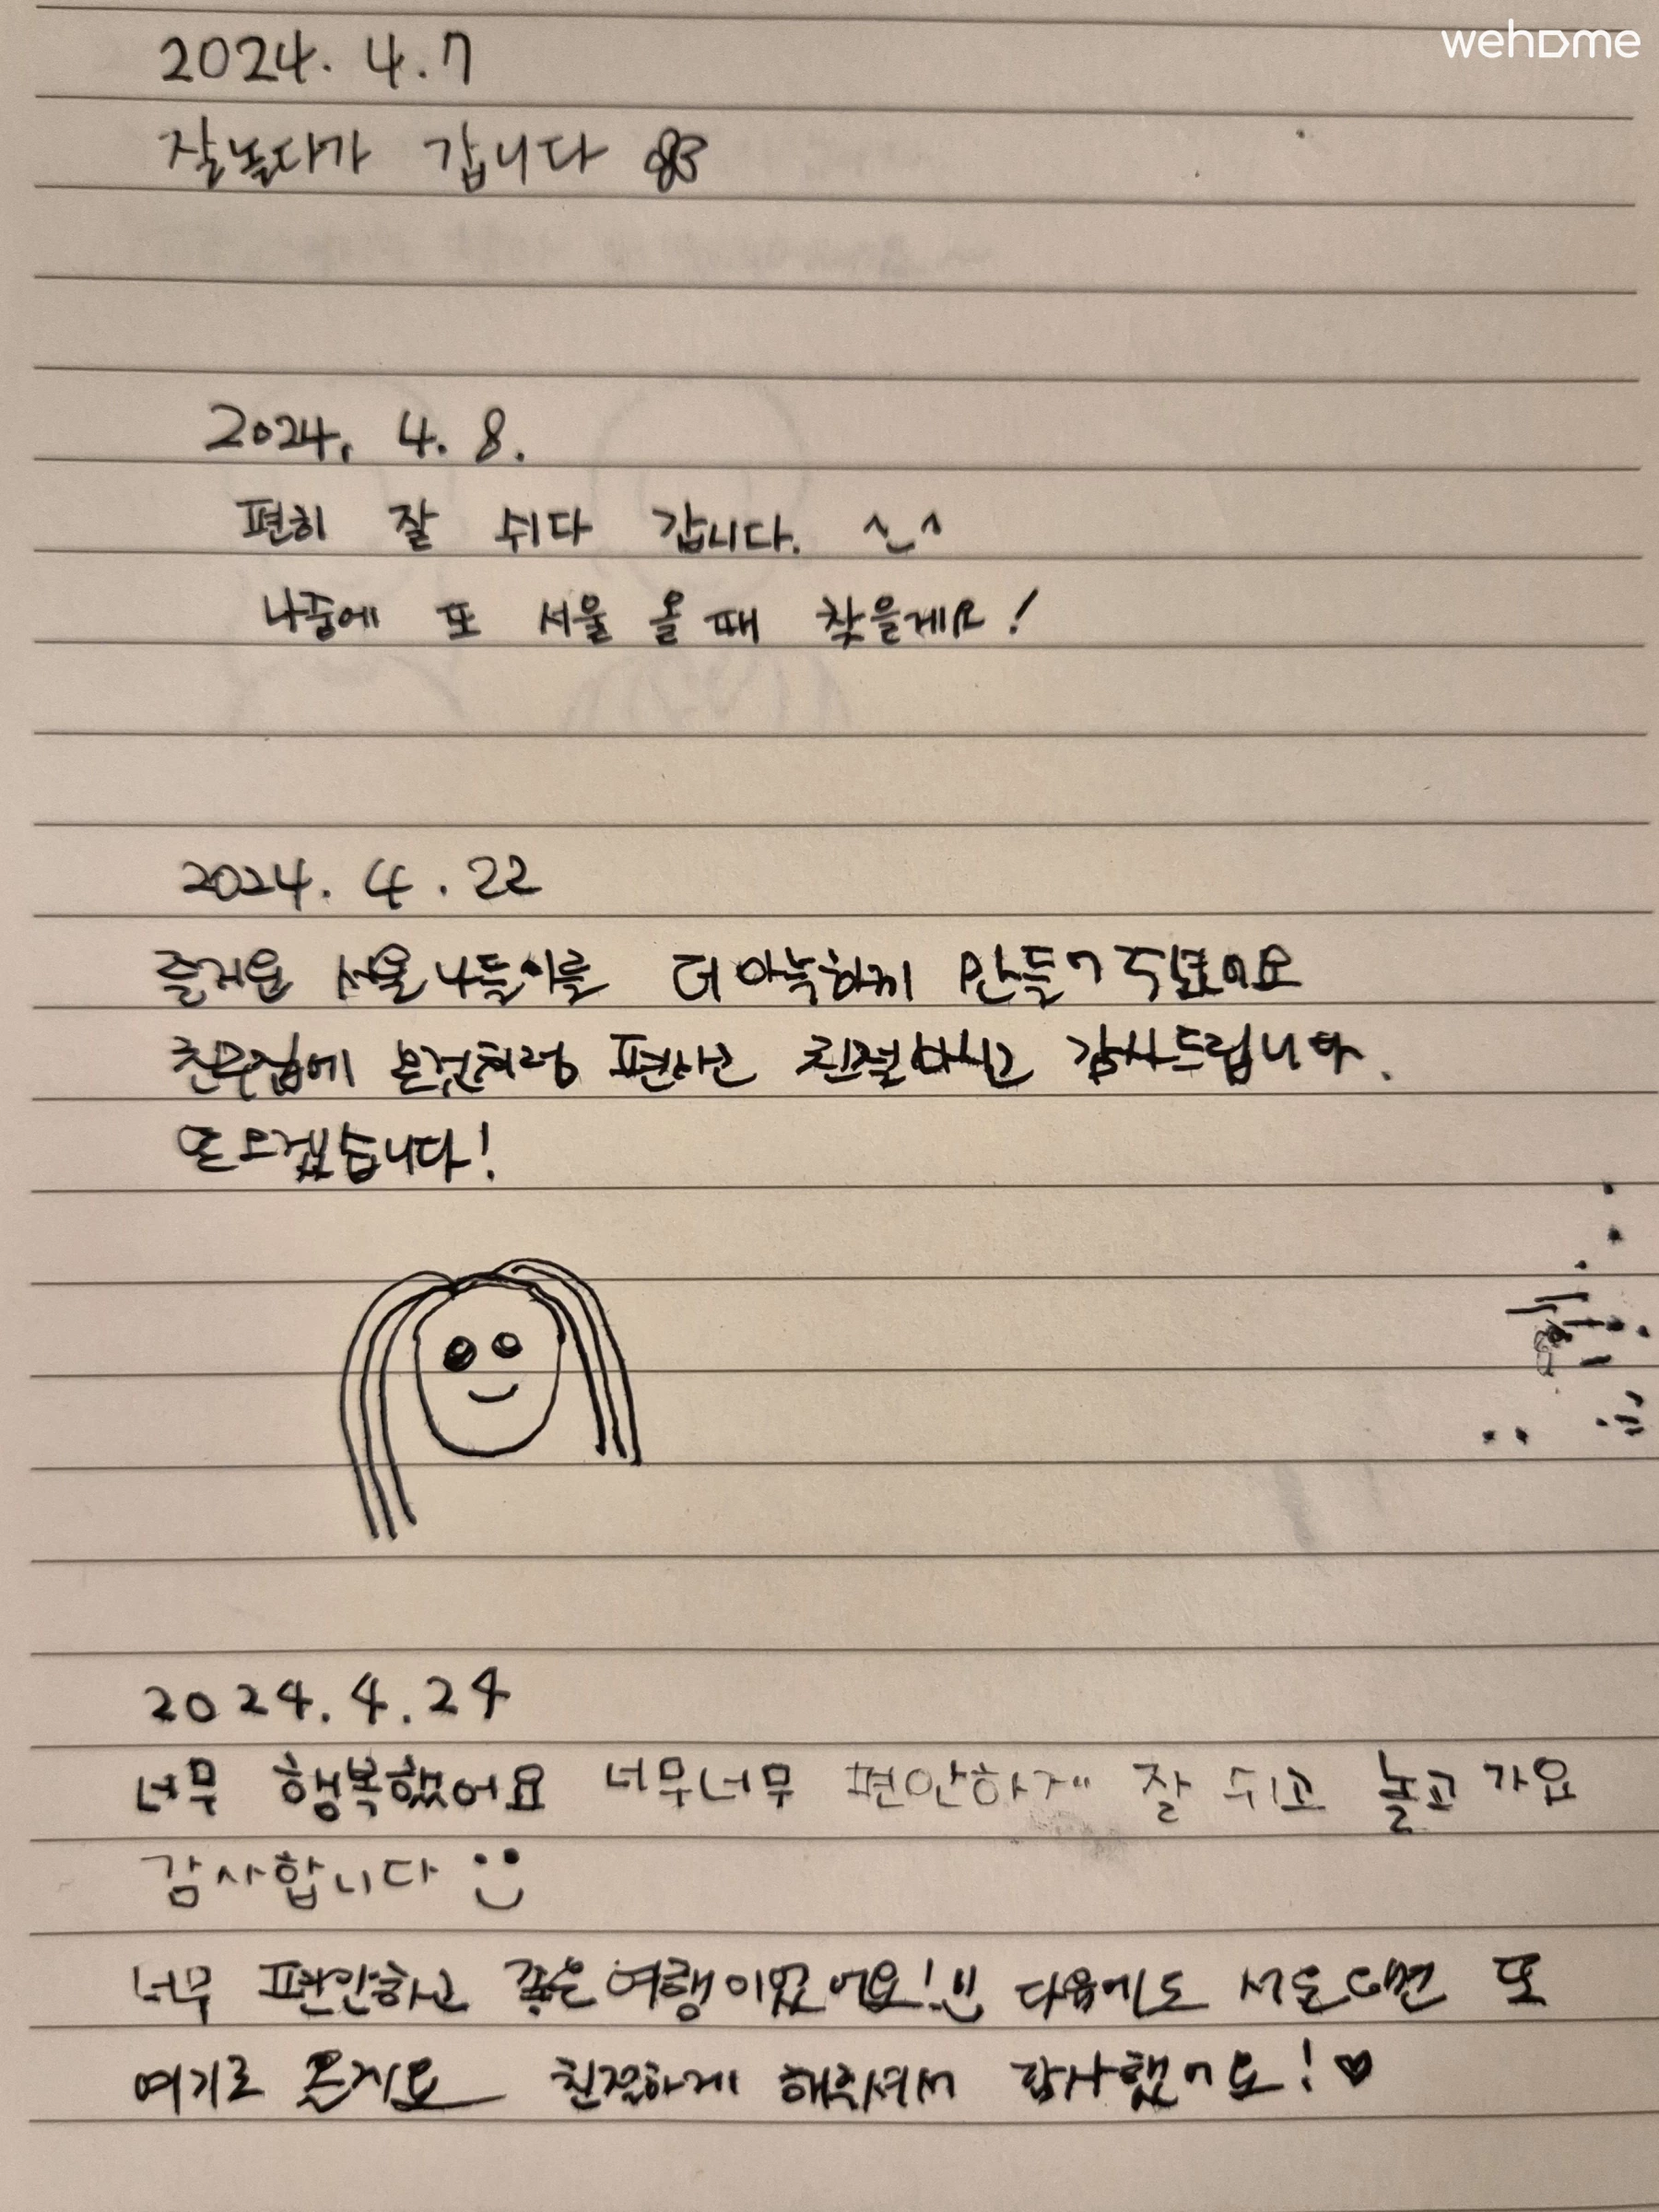 wehome
2024. 4. 7
잘놀다가 갑니다
2024. 4. 8.
편히 잘 쉬다 갑니다. ^_^
나중에 또 서울 올 때 찾을게요!
2024. 4. 22
즐거운 서울나들이를 더 아늑하게 만들어주셨어요
친구집에 온것처럼 편하고 친절하시고 감사드립니다.
또오겠습니다!
2024. 4. 24
너무 행복했어요 너무너무 편안하게 잘 쉬고 놀고 가요
감사합니다
너무 편안하고 좋은여행이었어요!!! 다음에도 서울오면 또
여기로 올게요 친절하게 해주셔서 감사했어요! ♥